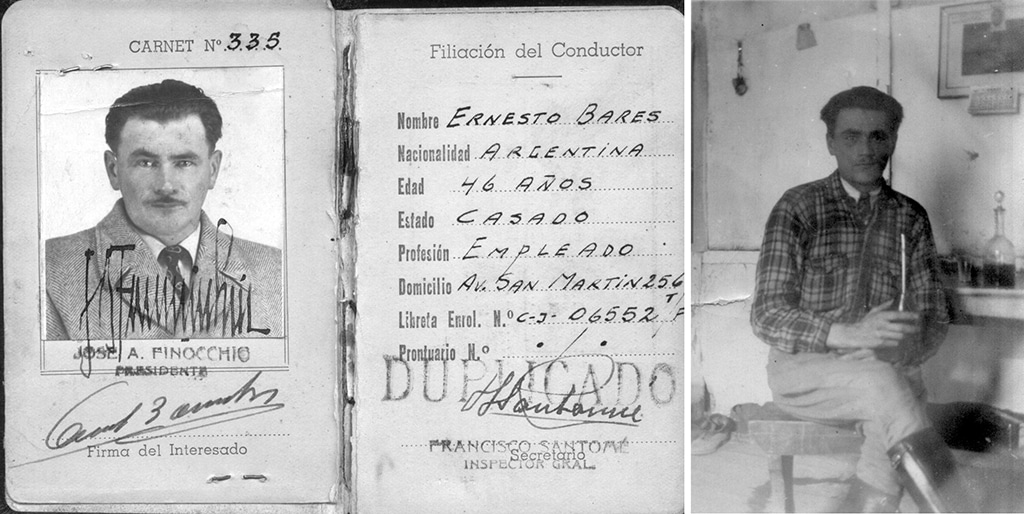 CARNET Nº 335.
JOSE A. FINOCCHIO
PRESIDENTE
Firma del Interesado
Filiación del Conductor
Nombre ERNESTO BARES
Nacionalidad ARGENTINA
Edad 46 AÑOS
Estado CASADO
Profesión EMPLEADO
Domicilio AV. SAN MARTIN 256
Libreta Enrol. N.º C-J- 06552
Prontuario N.º
DUPLICADO
FRANCISCO SANTOMÉ
Secretario
INSPECTOR GRAL.